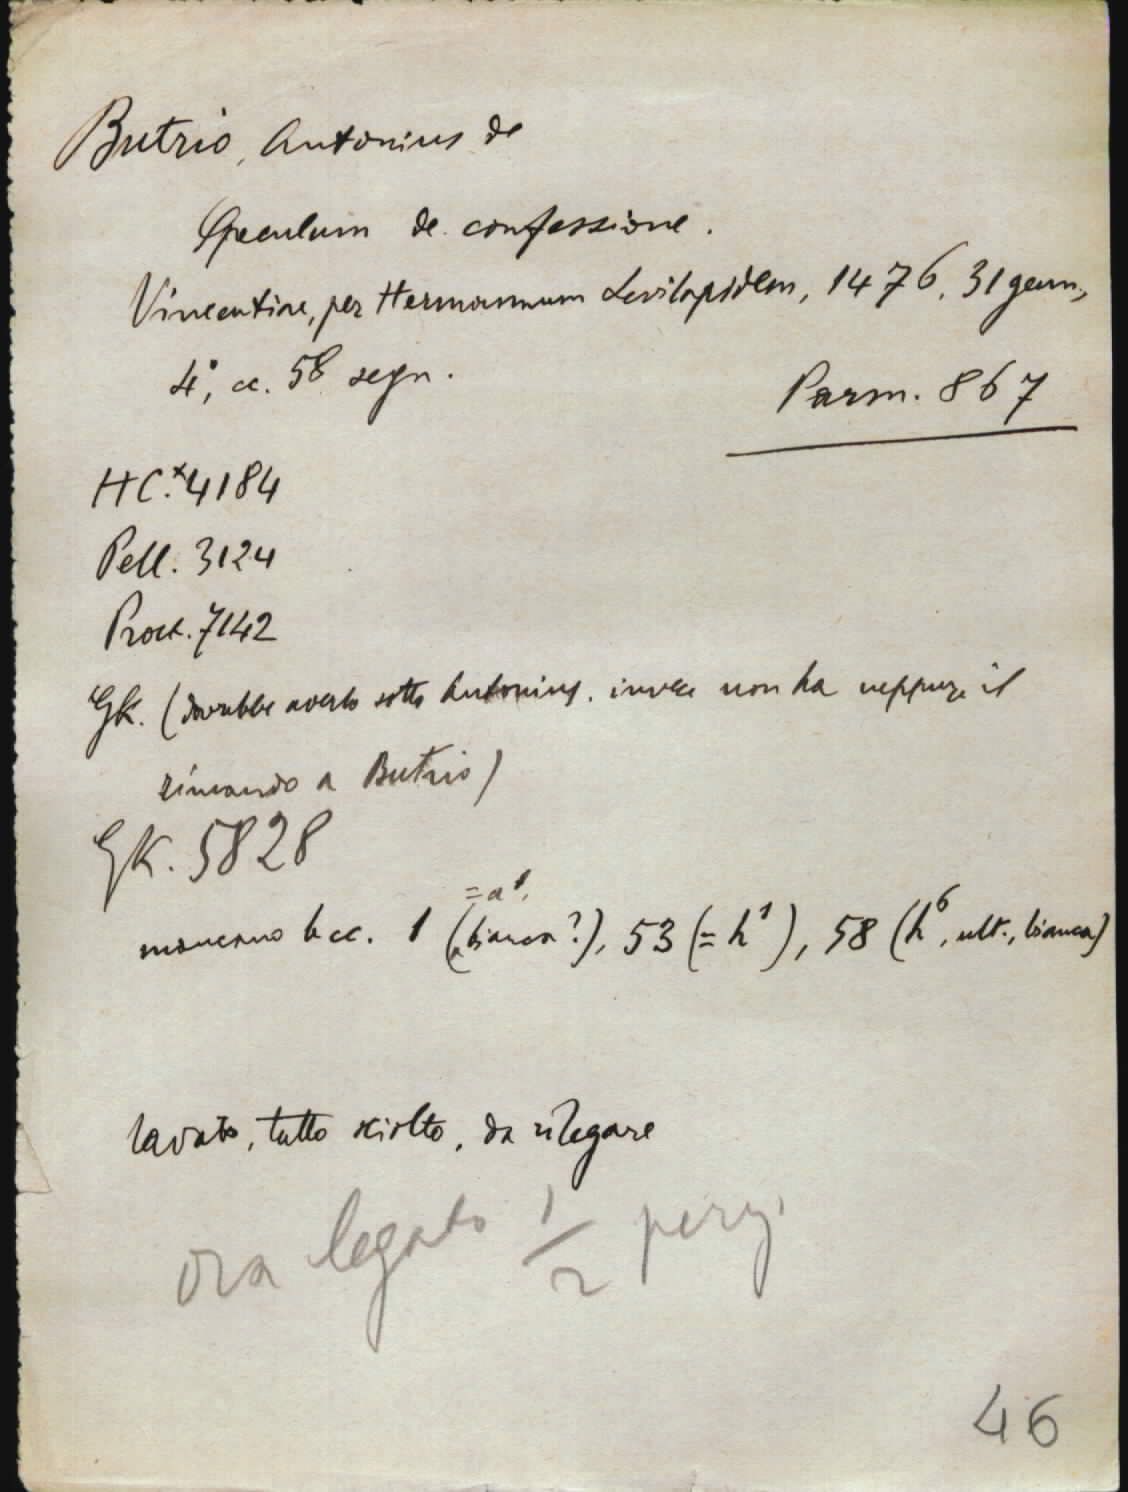 Butrio, Antonius de
Speculum de confessione.
Vincentiae, per Hermannum Levilapidem, 1476, 31 genn.,
4°, cc. 58 segn.
Parm. 867
HC.* 4184
Pell. 3124
Proct. 7142
GK. (dovrebbe averlo sotto Antonius, invece non ha neppure il
rimando a Butrio)
GK. 5828
= a¹,
mancano le cc. 1 (bianca?), 53 (= h¹), 58 (h⁶, ult., bianca)
lavato, tutto sciolto, da rilegare
ora legato 1/2 perg.
46